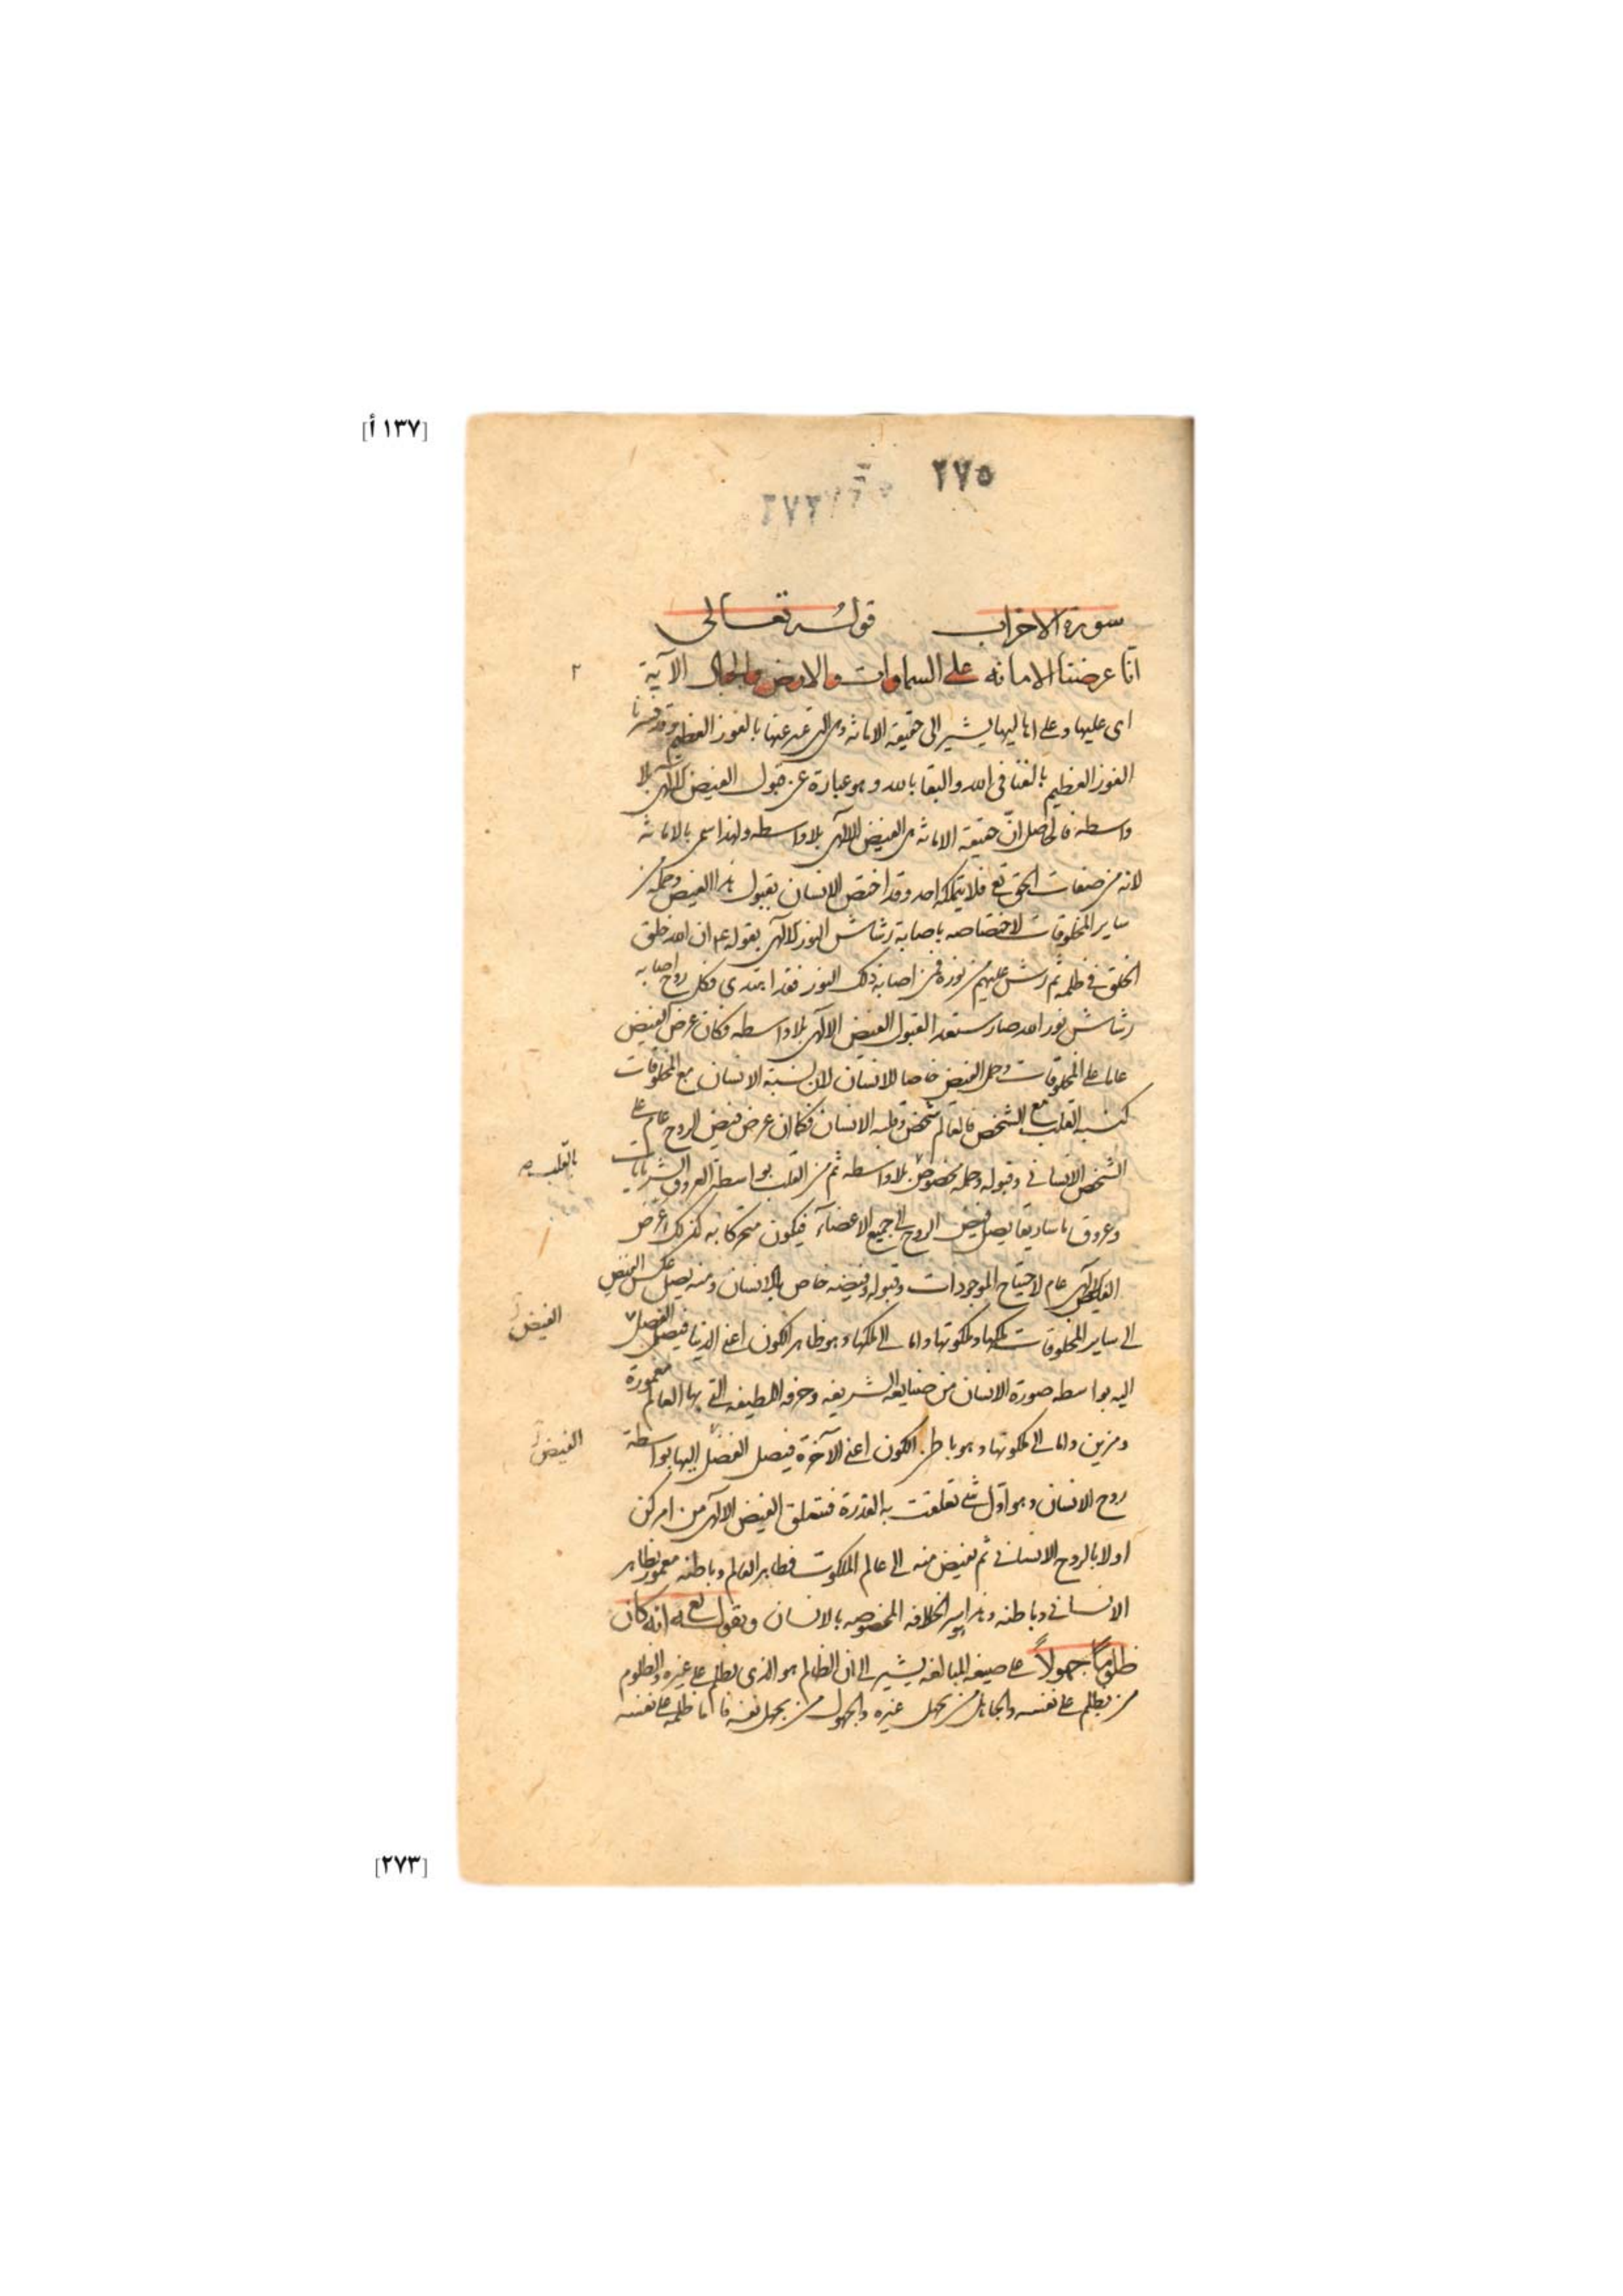 [١٣٧ أ]
٢٧٥
٢٧٢
سورة الاحزاب قوله تعالى
انا عرضنا الامانه على السماوات والارض والجبال الآية
٢
اى عليها وعلى اهاليها يشير الى حقيقة الامانة وهى التى عبر عنها بالفوز العظيم وقد فسرنا
الفوز العظيم بالفنا فى الله والبقا بالله وهو عبارة عن قبول الفيض الالهى بلا
واسطه فالحاصل ان حقيقة الامانة هى الفيض الالهى بلا واسطه ولهذا سمى بالامانة
لانه من صفات الحق تع فلا يتملكه احد وقد اختص الانسان بقبول هذا الفيض وحمله من
ساير المخلوقات لاختصاصه باصابة رشاش النور الالهى بقوله عم ان الله خلق
الخلق فى ظلمه ثم رش عليهم من نوره فمن اصابه ذلك النور فقد اهتدى فكل روح اصابه
رشاش نور الله صار مستعدا لقبول الفيض الالهى بلا واسطه فكان عرض الفيض
عاما على المخلوقات وحمل الفيض خاصا للانسان لان نسبة الانسان مع المخلوقات
كنسبه القلب مع الشخص فالعالم شخص وقلبه الانسان فكما ان عرض فيض الروح عام على
الشخص الانسانى وقبوله وحمله مخصوص بلا واسطه ثم من القلب بواسطة العروق الشريانات
بالقلب صح
وعروق ماساريقا يصل فيض الروح الى جميع الاعضآء فيكون متحركا به كذلك عرض
الفيض الالهى عام لاحتياج الموجودات وقبوله وفيضه خاص بالانسان ومنه يصل عكس الفيض
الى ساير المخلوقات ملكها وملكوتها واما الى ملكها وهو ظاهر الكون اعنى الدنيا فيصل الفضل
الفيض
اليه بواسطه صورة الانسان من صنايعه الشريفه وحرفه اللطيفه التى بها العالم معمورة
ومزين واما الى ملكوتها وهو باطن الكون اعنى الآخرة فيصل الفضل اليها بواسطة
الفيض
روح الانسان وهو اول شى تعلقت به القدرة فيتعلق الفيض الالهى من امر كن
اولا بالروح الانسانى ثم يفيض منه الى عالم الملكوت فظاهر العالم وباطنه معمور بظاهر
الانسانى وباطنه وهذا سر الخلافه المخصوصه بالانسان وبقوله تع انه كان
ظلوما جهولاً على صيغه المبالغه يشير الى ان الظالم هو الذى يظلم على غيره والظلوم
من يظلم على نفسه والجاهل من يجهل غيره والجهول من يجهل نفسه فاما ظلمه على نفسه
[٢٧٣]